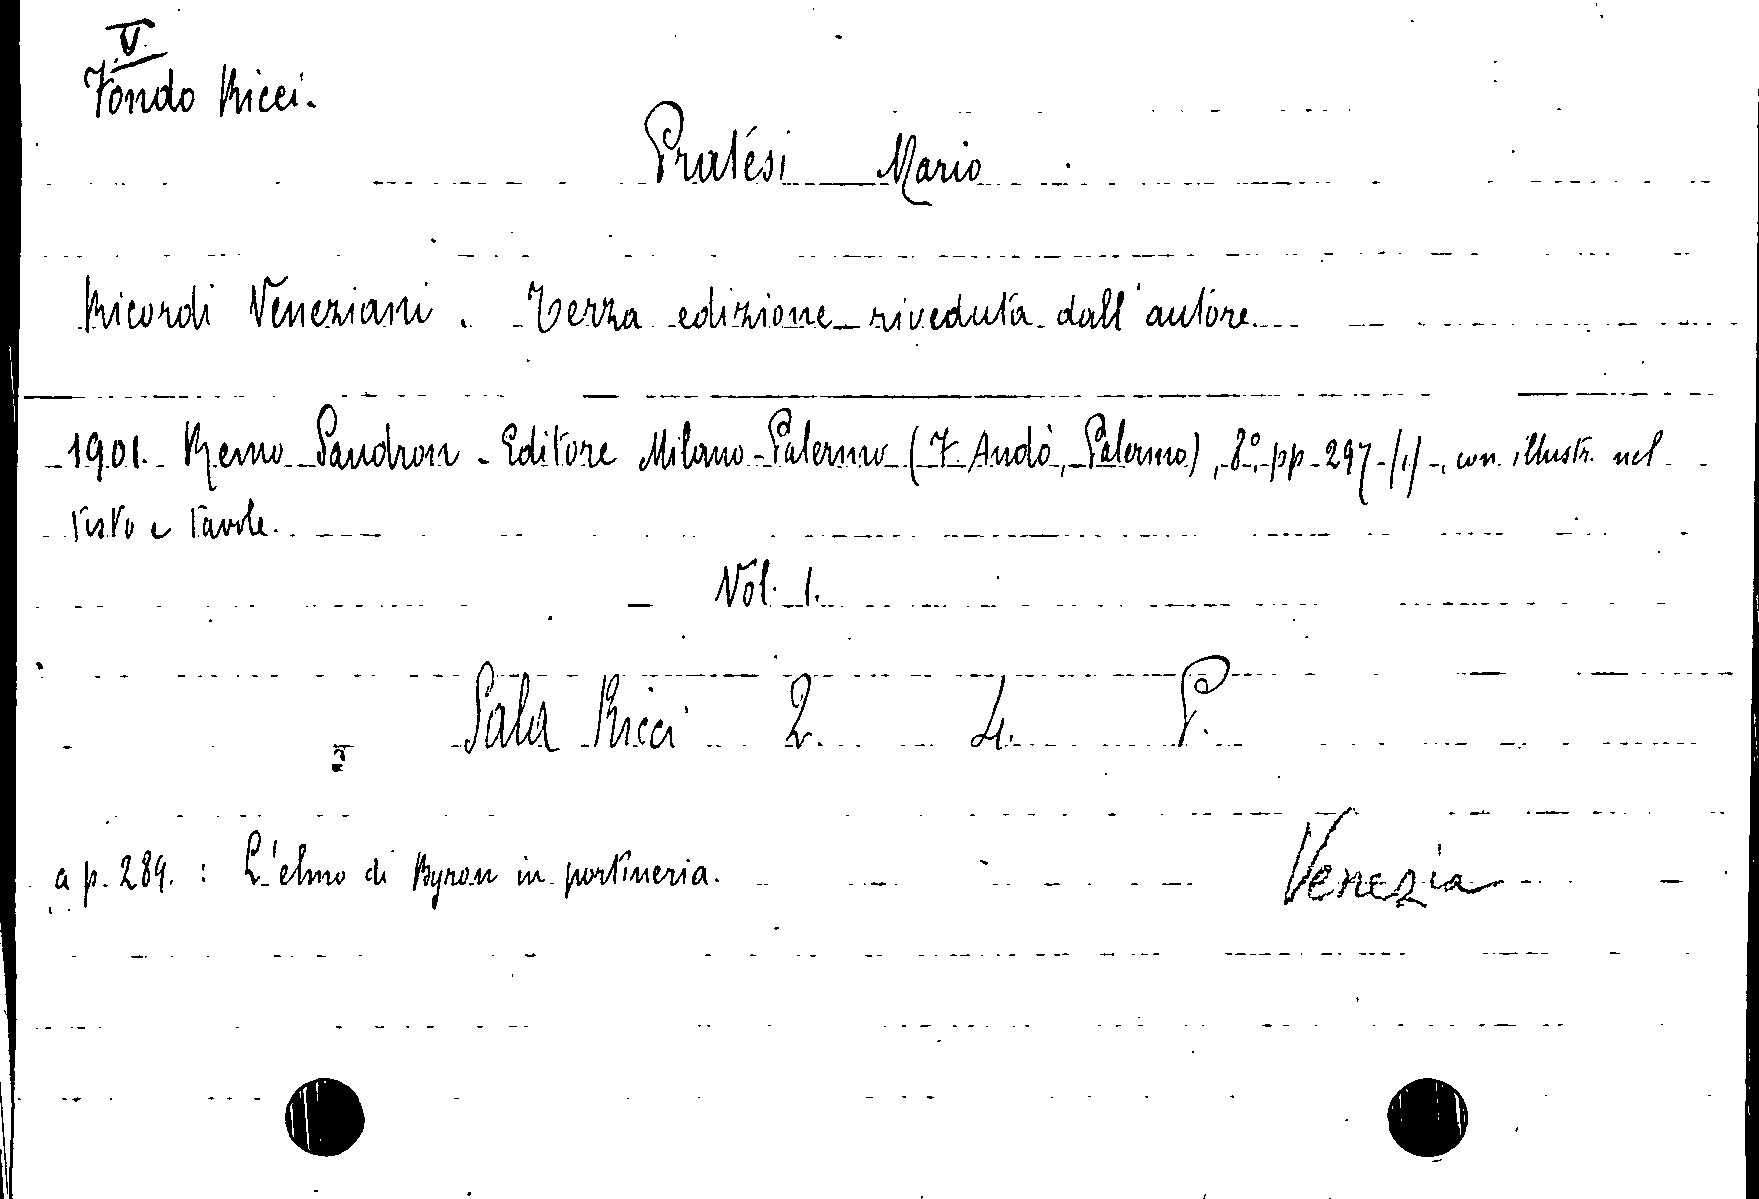 V.
Fondo Ricci.
Pratesi Mario
Ricordi Veneziani. Terza edizione riveduta dall'autore
1901. Remo Sandron - Editore Milano-Palermo (F. Andò, Palermo), 8°, pp. 297-/1/-, con illustr. nel
testo e tavole.
Vol. 1.
Sala Ricci 2. 4. P.
a p. 289. : L'elmo di Byron in portineria.
Venezia